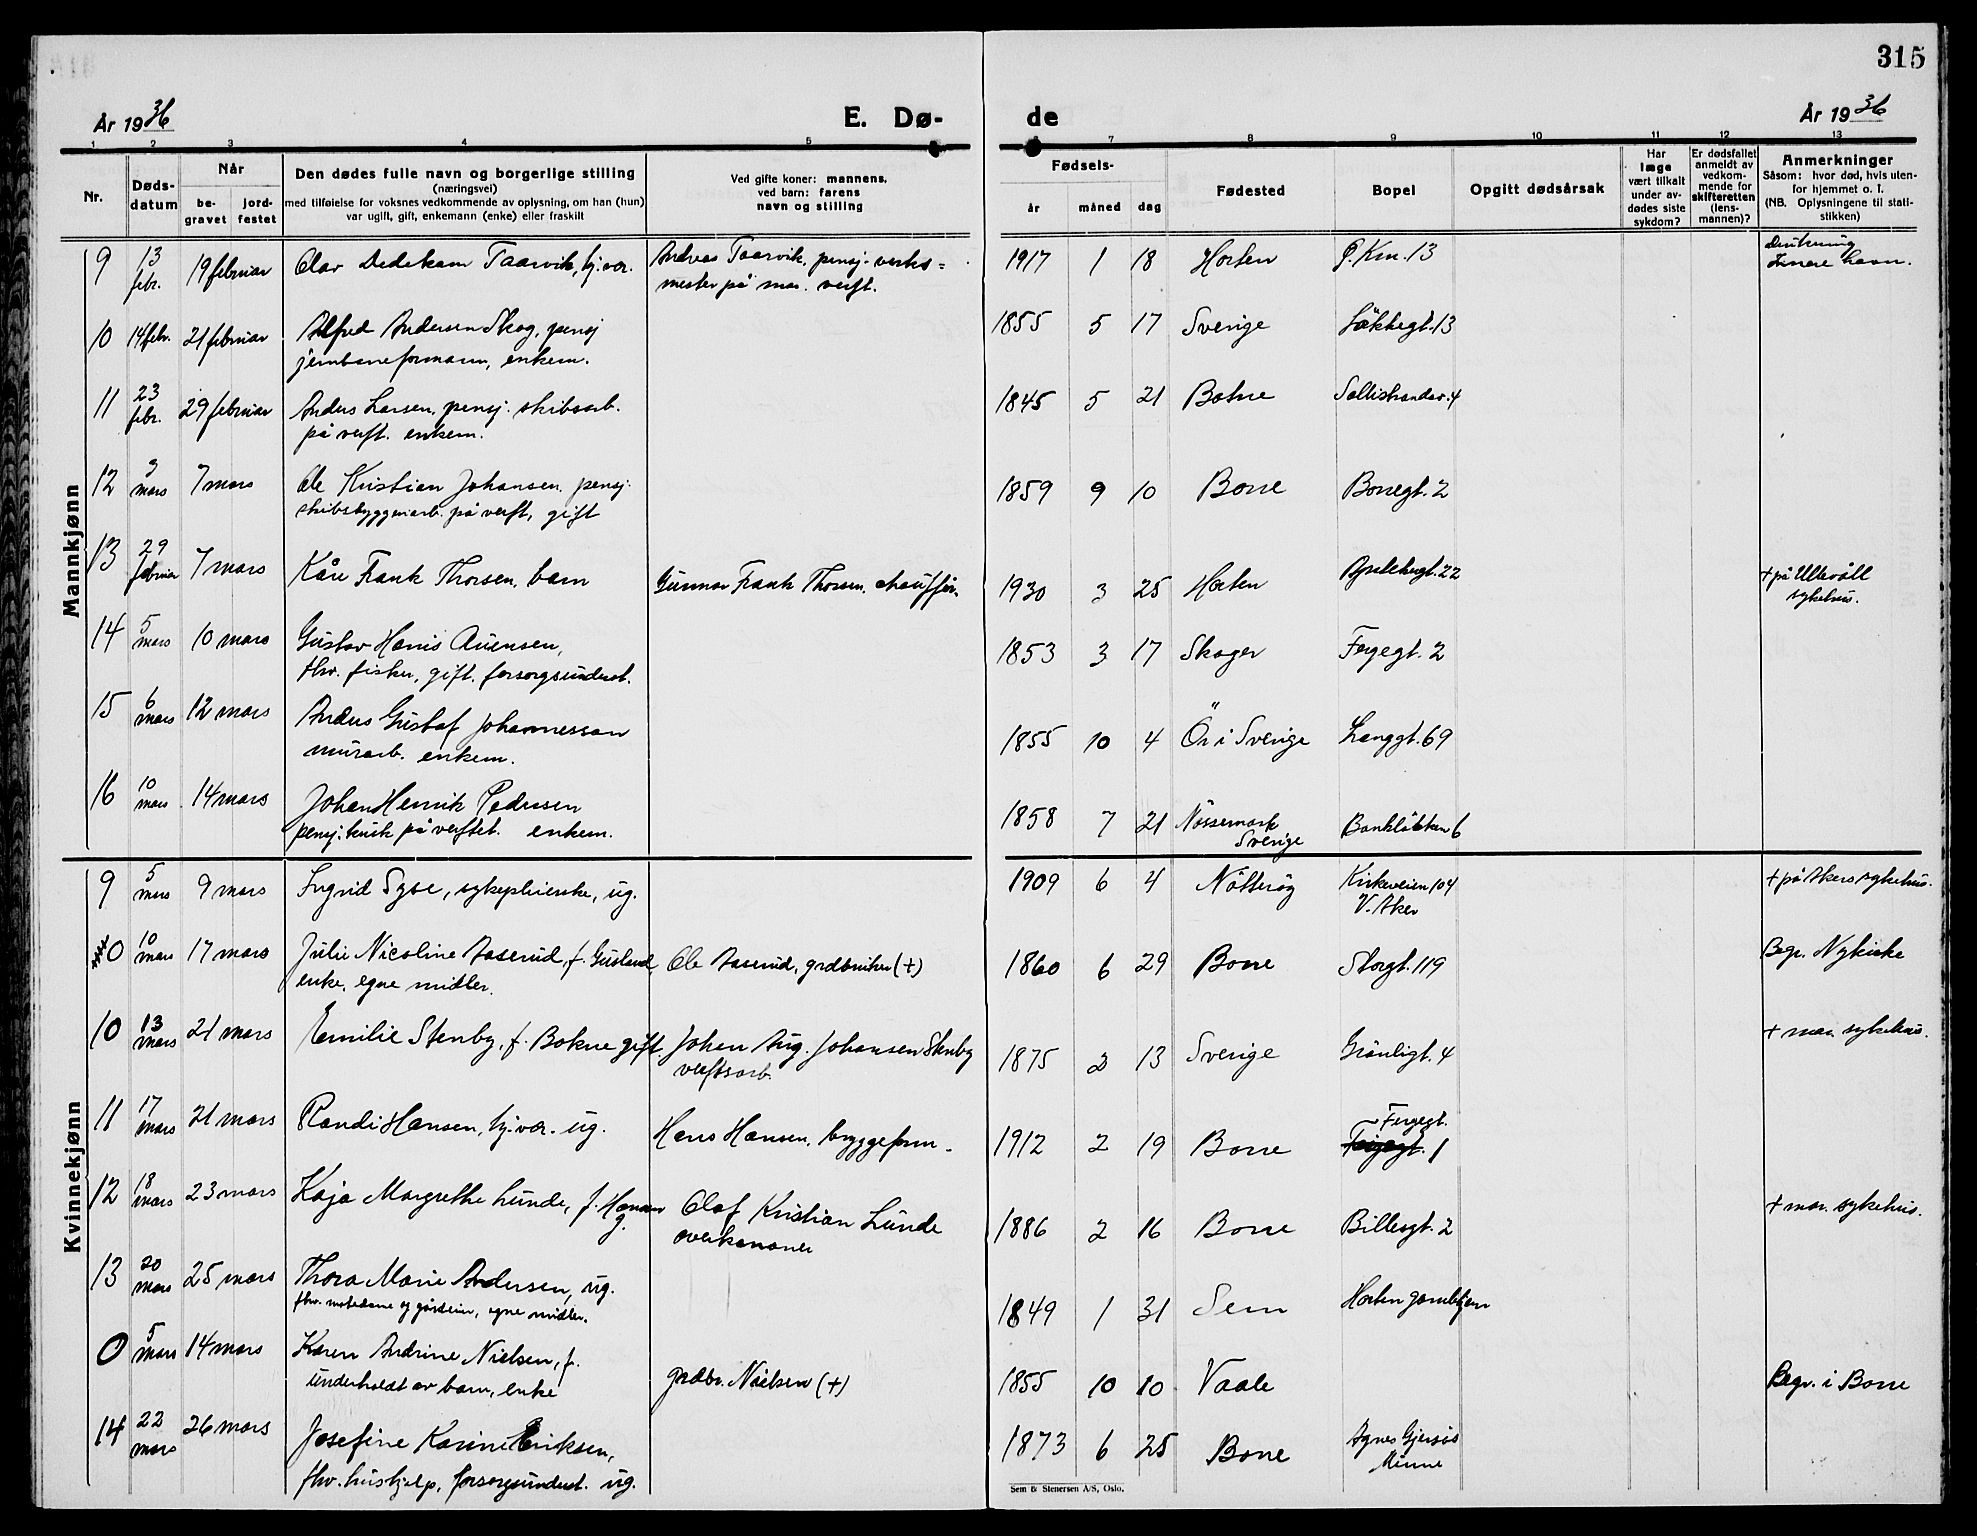 315
År 1936
E. Dø-
de
År 1936
1 2 3 4 5 6 7 8 9 10 11 12 13
Nr.
Døds-
datum
Når
be-
gravet
jord-
festet
Den dødes fulle navn og borgerlige stilling
(næringsvei)
med tilføielse for voksnes vedkommende av oplysning, om han (hun)
var ugift, gift, enkemann (enke) eller fraskilt
Ved gifte koner: mannens,
ved barn: farens
navn og stilling
Fødsels-
år måned dag
Fødested
Bopel
Opgitt dødsårsak
Har
læge
vært tilkalt
under av-
dødes siste
sykdom?
Er dødsfallet
anmeldt av
vedkom-
mende for
skifteretten
(lens-
mannen)?
Anmerkninger
Såsom: hvor død, hvis uten-
for hjemmet o. l.
(NB. Oplysningene til stati-
stikken)
Mannkjønn
9 13 febr. 19 februar Olav Dedekam Taarvik, hj.vær. Andreas Taarvik, pensj. verks= 1917 1 18 Horten P. Km. 13 Drukning
mester på mar. verft. Indre havn.
10 14 febr. 21 februar Alfred Andersen Skog, pensj 1855 5 17 Sverige Løkkegt. 13
jernbaneformann, enkem.
11 23 febr. 29 februar Anders Larsen, pensj. skibsarb. 1845 5 21 Botne Sollistrandv. 4
på verft. enkem.
12 3 mars 7 mars Ole Kristian Johansen, pensj. 1859 9 10 Borre Borregt. 2
skibsbyggerarb. på verft, gift
13 29 februar 7 mars Kåre Frank Thorsen, barn Gunnar Frank Thorsen, chauffør. 1930 3 25 Horten Apotekergt. 22 + på Ullevåll
sykehus.
14 5 mars 10 mars Gustav Hans Auensen, 1853 3 17 Skoger Fergegt. 2
fhv. fisker, gift. forsorgsunderst.
15 6 mars 12 mars Anders Gustaf Johannesson 1855 10 4 Ör i Sverige Langgt. 69
murarb. enkem.
16 10 mars 14 mars Johan Henrik Pedersen 1858 7 21 Nössemark Bankløkken 6
pensj. kusk på verftet. enkem. Sverige
Kvinnekjønn
9 5 mars 9 mars Ingrid Sybe, sykepleierske, ug. 1909 6 4 Nøtterøy Kirkeveien 104 + på Akers sykehus.
V. Aker
0 10 mars 17 mars Julie Nicoline Aaserud, f. Gusland Ole Aaserud, grdbruker (+) 1860 6 29 Borre Storgt. 119 Begr. Nykirke
enke, egne midler.
10 13 mars 21 mars Emilie Stenby, f. Bokne gift Johan Aug. Johansen Stenby 1875 2 13 Sverige Grønligt. 4 + mar. sykehus.
verftsarb.
11 17 mars 21 mars Randi Hansen, hj.vær. ug. Hans Hansen, bryggeform. 1912 2 19 Borre Fergegt. 1
12 18 mars 23 mars Kaja Margrethe Lunde, f. Hansen Olaf Kristian Lunde 1886 2 16 Borre Billesgt. 2 + mar. sykehus.
g. overkanoner
13 20 mars 25 mars Thora Marie Andersen, ug. 1849 1 31 Sem Horten gamlehjem
fhv. motedame og gårdeier, egne midler.
0 5 mars 14 mars Karen Andrine Nielsen, f. grdbr. Nielsen (+) 1855 10 10 Vaale Begr. i Borre
underholdt av barn, enke
14 22 mars 26 mars Josefine Karine Eriksen, 1873 6 25 Borre Agnes Gjersøs
fhv. hushjelp, forsorgsunderst. ug. Minne
Sem & Stenersen A/S, Oslo.